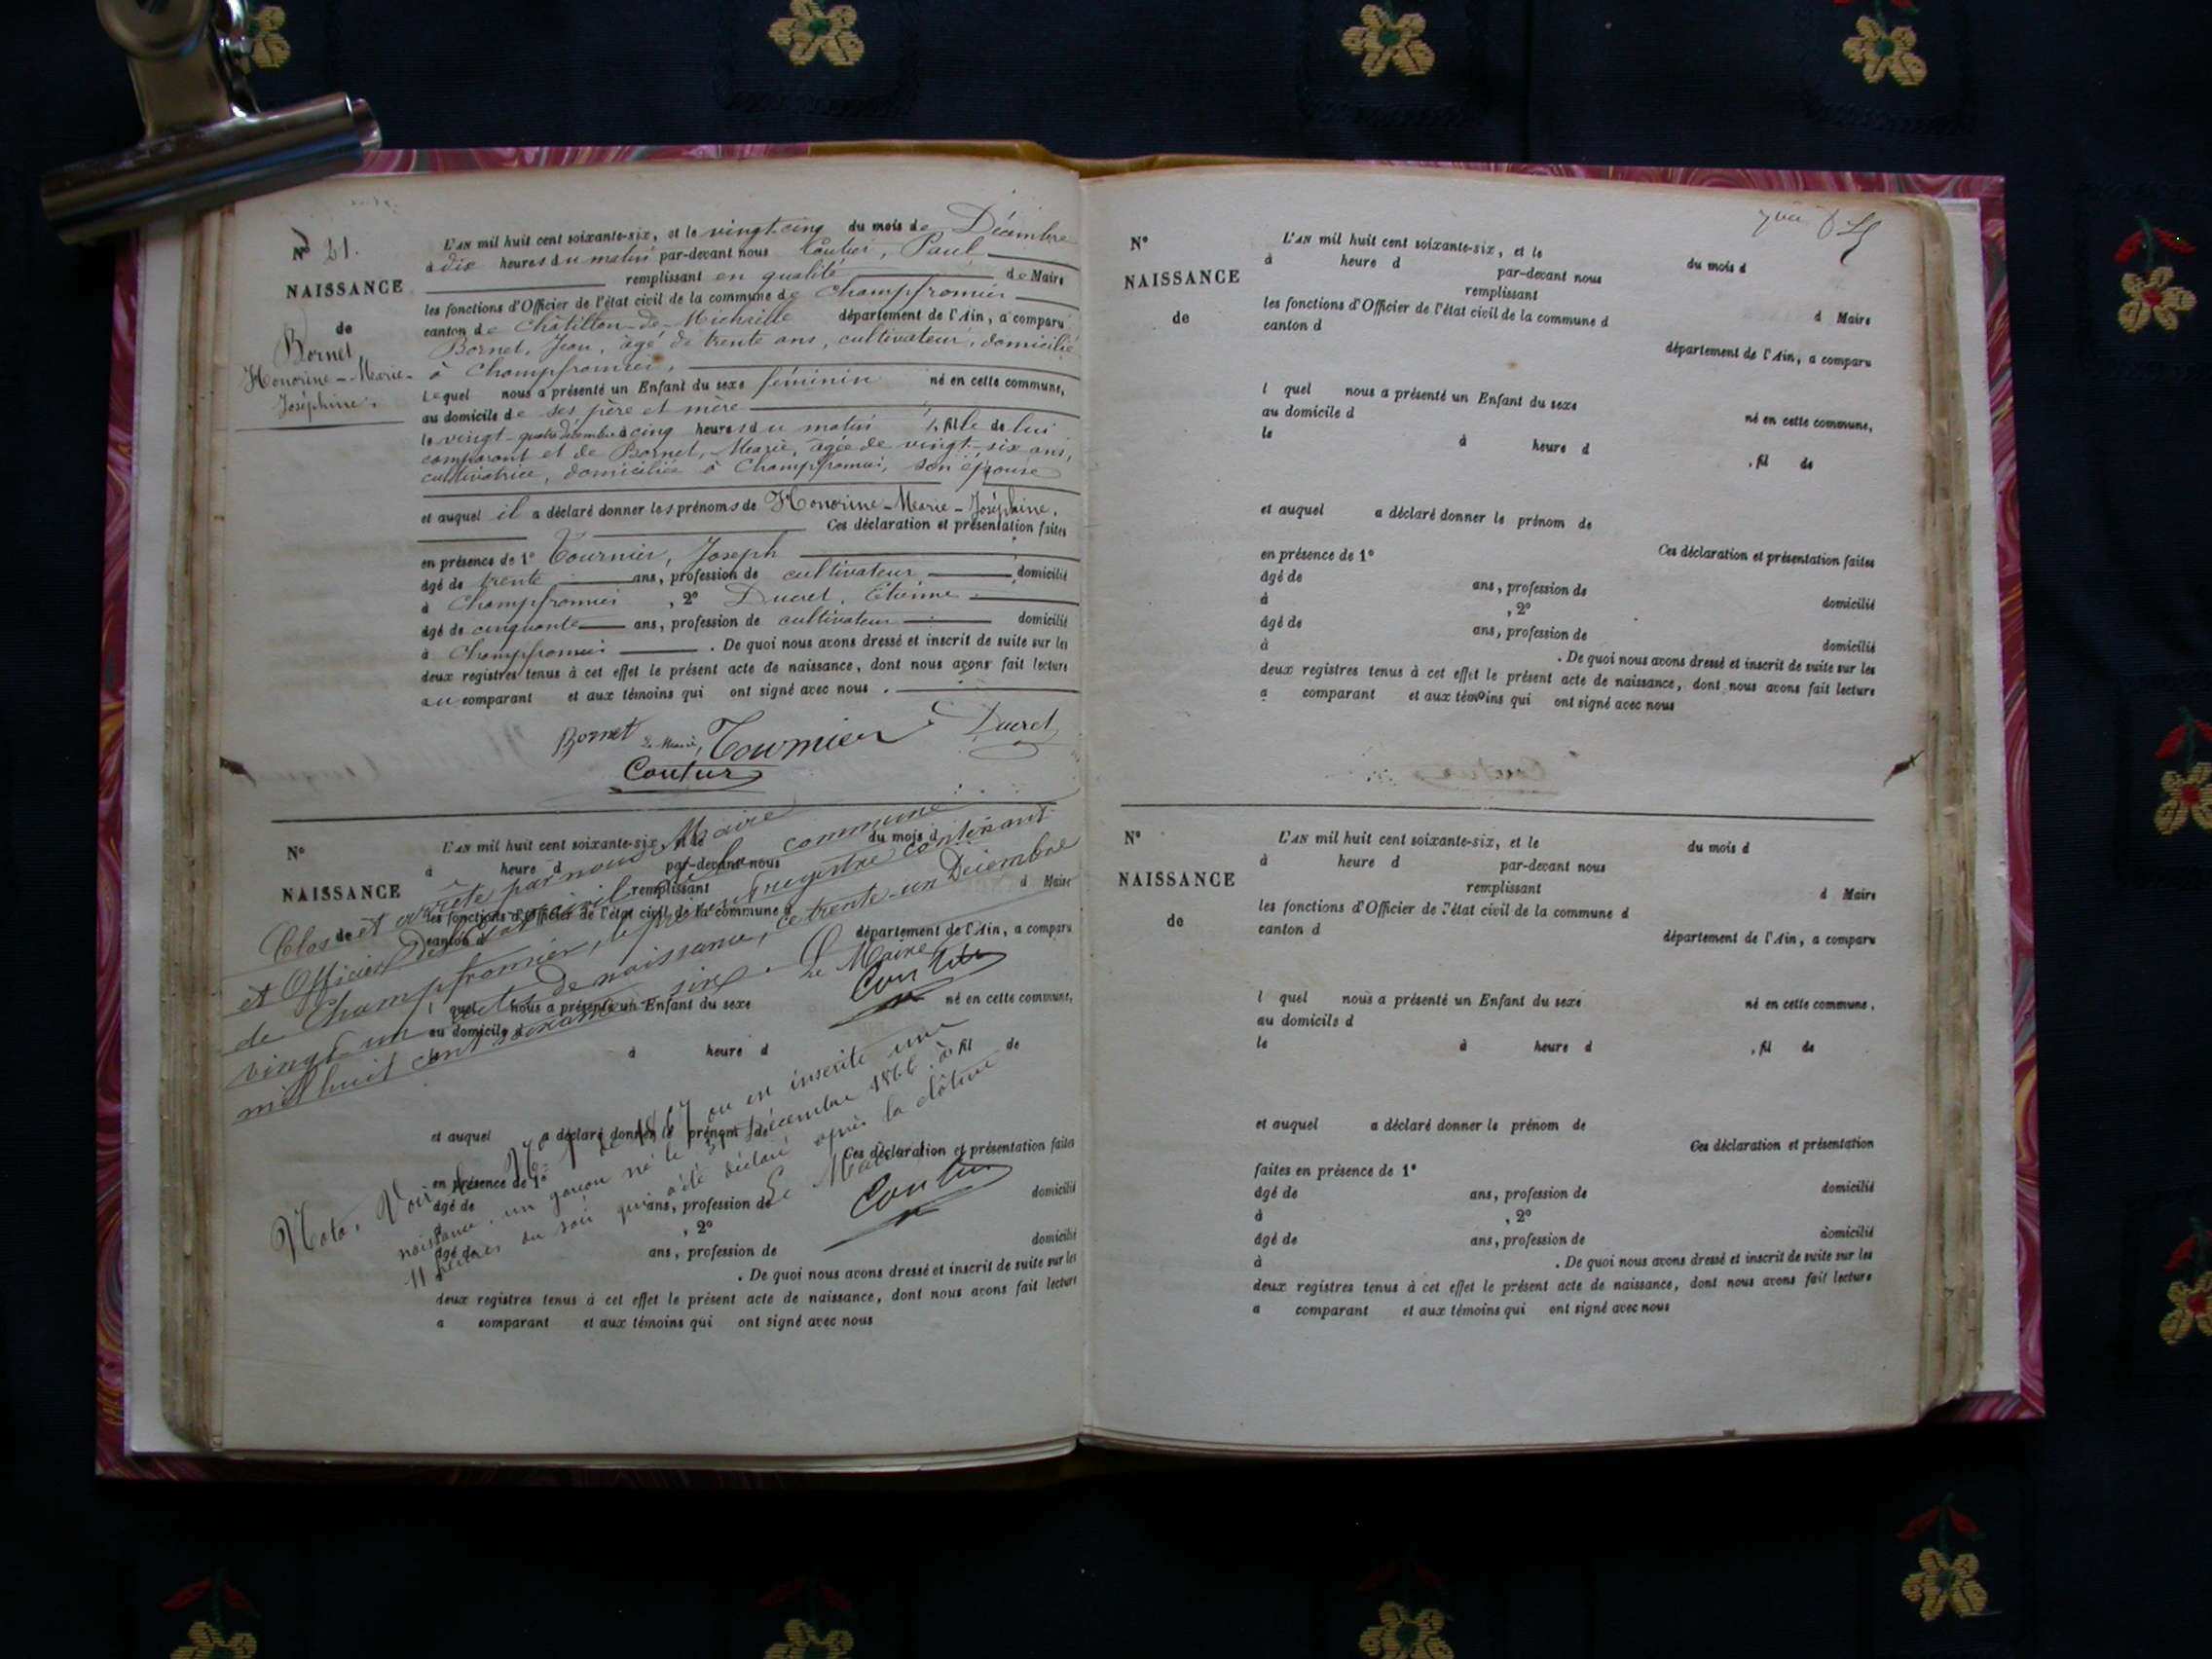 N° 21.
NAISSANCE
de
Bornet
Honorine-Marie-
Joséphine.
L'AN mil huit cent soixante-six, et le vingt cinq du mois de Décembre
à dix heures du matin par-devant nous Coutier, Paul
remplissant en qualité de Maire
les fonctions d'Officier de l'état civil de la commune de Champfromier
canton de Châtillon-de-Michaille département de l'Ain, a comparu
Bornet, Jean, âgé de trente ans, cultivateur, domicilié
à Champfromier,
Lequel nous a présenté un Enfant du sexe féminin né en cette commune,
au domicile de ses père et mère
le vingt-quatre décembre à cinq heures du matin, fille de lui
comparant et de Bornet, Marie, âgée de vingt-six ans,
cultivatrice, domiciliée à Champfromier, son épouse
et auquel il a déclaré donner les prénoms de Honorine-Marie-Joséphine.
Ces déclaration et présentation faites
en présence de 1° Tournier, Joseph
âgé de trente ans, profession de cultivateur domicilié
à Champfromier, 2° Ducret, Etienne
âgé de cinquante ans, profession de cultivateur domicilié
à Champfromier. De quoi nous avons dressé et inscrit de suite sur les
deux registres tenus à cet effet le présent acte de naissance, dont nous avons fait lecture
au comparant et aux témoins qui ont signé avec nous.
Bornet Le Maire, Tournier J Ducret
Coutier
N°
NAISSANCE
de
L'AN mil huit cent soixante-six, et le du mois d
à heure d par-devant nous
remplissant d Maire
les fonctions d'Officier de l'état civil de la commune d
canton d département de l'Ain, a comparu
l quel nous a présenté un Enfant du sexe né en cette commune,
au domicile d
à heure d , fil de
et auquel a déclaré donner le prénom de
Ces déclaration et présentation faites
en présence de 1°
âgé de ans, profession de domicilié
à , 2°
âgé de ans, profession de domicilié
à . De quoi nous avons dressé et inscrit de suite sur les
deux registres tenus à cet effet le présent acte de naissance, dont nous avons fait lecture
a comparant et aux témoins qui ont signé avec nous
Clos et arrêté par nous Maire
et Officier de l'état civil de la commune
de Champfromier, le présent registre contenant
vingt-un actes de naissance, ce trente-un Décembre
mil huit cent soixante six. Le Maire
Coutier
Nota. Voir le N° 1 de 1867 où est inscrite une
naissance, un garçon né le 31 décembre 1866 à
11 heures du soir qui a été déclaré après la clôture
Le Maire
Coutier
N°
NAISSANCE
de
L'AN mil huit cent soixante-six, et le du mois d
à heure d par-devant nous
remplissant d Maire
les fonctions d'Officier de l'état civil de la commune d
canton d département de l'Ain, a comparu
l quel nous a présenté un Enfant du sexe né en cette commune,
au domicile d
le à heure d , fil de
et auquel a déclaré donner le prénom de
Ces déclaration et présentation faites
en présence de 1°
âgé de ans, profession de domicilié
à , 2°
âgé de ans, profession de domicilié
à . De quoi nous avons dressé et inscrit de suite sur les
deux registres tenus à cet effet le présent acte de naissance, dont nous avons fait lecture
a comparant et aux témoins qui ont signé avec nous
N°
NAISSANCE
de
L'AN mil huit cent soixante-six, et le du mois d
à heure d par-devant nous
remplissant d Maire
les fonctions d'Officier de l'état civil de la commune d
canton d département de l'Ain, a comparu
l quel nous a présenté un Enfant du sexe né en cette commune,
au domicile d
le à heure d , fil de
et auquel a déclaré donner le prénom de
Ces déclaration et présentation
faites en présence de 1°
âgé de ans, profession de domicilié
à , 2°
âgé de ans, profession de domicilié
à . De quoi nous avons dressé et inscrit de suite sur les
deux registres tenus à cet effet le présent acte de naissance, dont nous avons fait lecture
a comparant et aux témoins qui ont signé avec nous